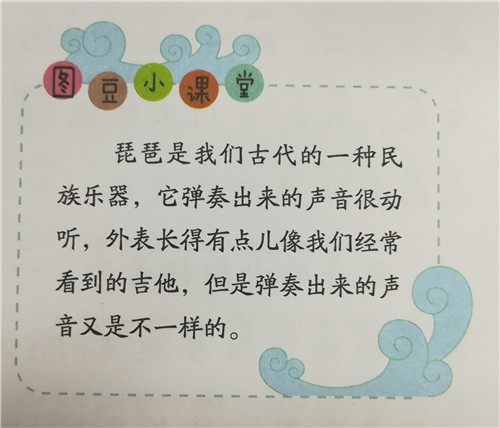 图豆小课堂
琵琶是我们古代的一种民
族乐器，它弹奏出来的声音很动
听，外表长得有点儿像我们经常
看到的吉他，但是弹奏出来的声
音又是不一样的。